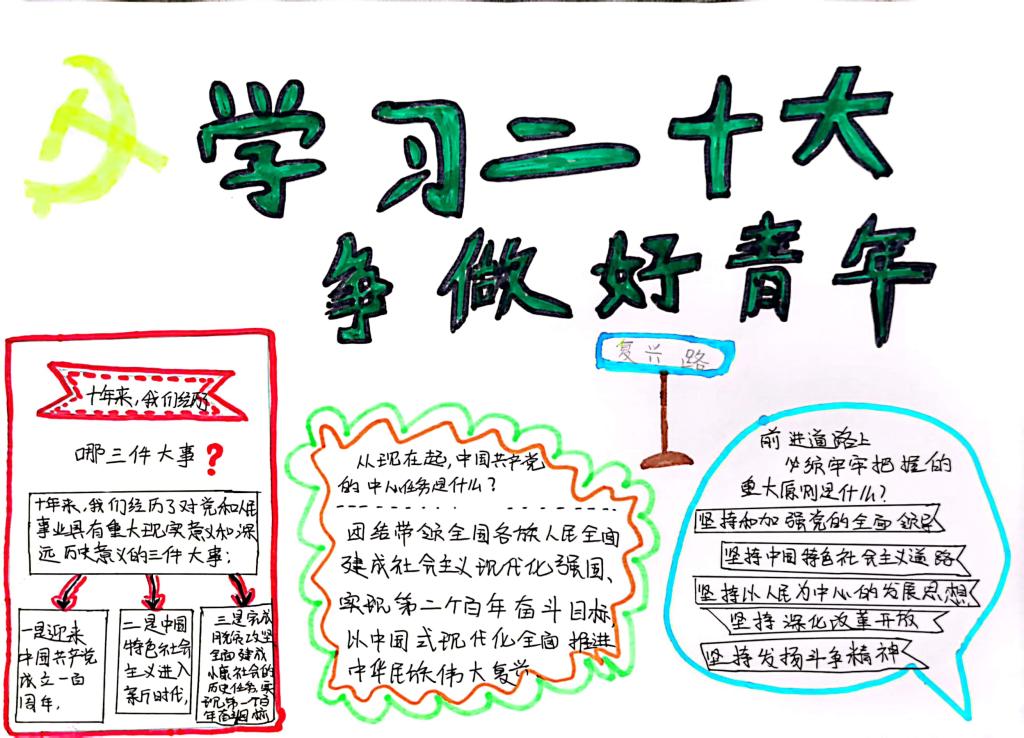 学习二十大
争做好青年
复兴路
十年来,我们经历
哪三件大事?
十年来,我们经历了对党和人民
事业具有重大现实意义和深
远历史意义的三件大事:
一是迎来
中国共产党
成立一百
周年,
二是中国
特色社会
主义进入
新时代,
三是完成
脱贫攻坚
全面建成
小康社会的
历史任务,实
现第一个百
年奋斗目标
从现在起,中国共产党
的中心任务是什么?
团结带领全国各族人民全面
建成社会主义现代化强国、
实现第二个百年奋斗目标,
以中国式现代化全面推进
中华民族伟大复兴.
前进道路上
必须牢牢把握的
重大原则是什么?
坚持和加强党的全面领导
坚持中国特色社会主义道路
坚持以人民为中心的发展思想
坚持深化改革开放
坚持发扬斗争精神